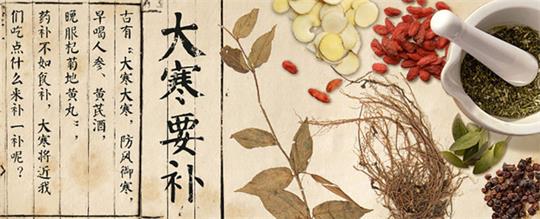 大寒要补
古有："大寒大寒，防风御寒，
早喝人参、黄芪酒，
晚服杞菊地黄丸"，
药补不如食补，大寒将近我
们吃点什么来补一补呢？